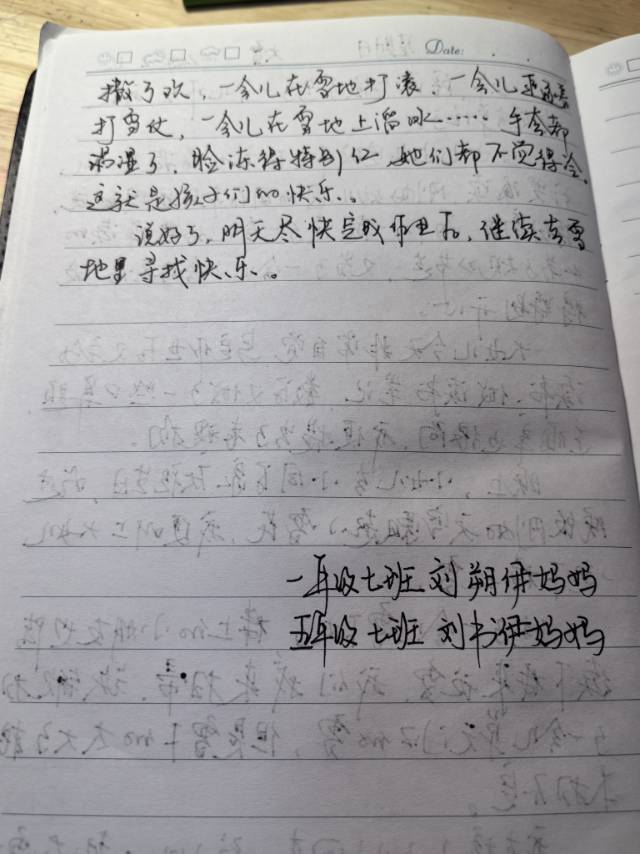 Date:
撒了欢，一会儿在雪地打滚，一会儿
打雪仗，一会儿在雪地上溜冰……手套都
湿了，脸冻得特别红，她们都不觉得冷。
这就是孩子们的快乐。
说好了，明天尽快完成作业后，继续去雪
地里寻找快乐。
一年级七班 刘朔伊妈妈
五年级七班 刘书伊妈妈